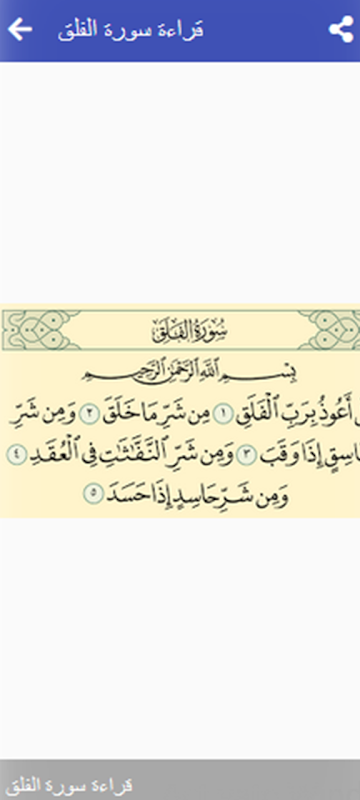 قراءة سورة الفلق
سُورَةُ الفَلَقِ
بِسْمِ ٱللَّهِ ٱلرَّحْمَٰنِ ٱلرَّحِيمِ
أَعُوذُ بِرَبِّ ٱلْفَلَقِ ١ مِن شَرِّ مَا خَلَقَ ٢ وَمِن شَرِّ
إِذَا وَقَبَ ٣ وَمِن شَرِّ ٱلنَّفَّٰثَٰتِ فِي ٱلْعُقَدِ ٤
وَمِن شَرِّ حَاسِدٍ إِذَا حَسَدَ ٥
قراءة سورة الفلق